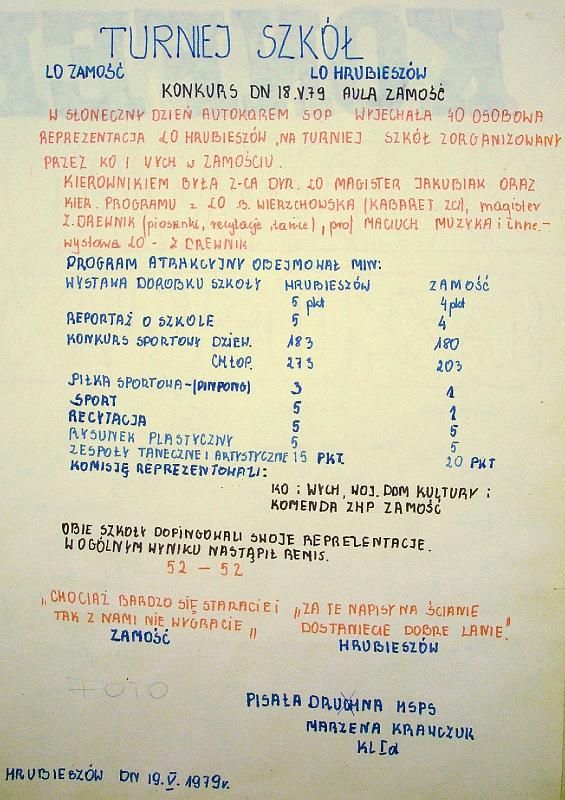 TURNIEJ SZKÓŁ
LO ZAMOŚĆ LO HRUBIESZÓW
KONKURS DN 18.V.79 AULA ZAMOŚĆ
W SŁONECZNY DZIEŃ AUTOKAREM SOP WYJECHAŁA 40 OSOBOWA
REPREZENTACJA LO HRUBIESZÓW NA TURNIEJ SZKÓŁ ZORGANIZOWANY
PRZEZ KO I WYCH W ZAMOŚCIU.
KIEROWNIKIEM BYŁA Z-CA DYR. LO MAGISTER JAKUBIAK ORAZ
KIER. PROGRAMU Z LO B. WIERZCHOWSKA (KABARET ZCI), magister
Z. DREWNIK (piosenki, recytacje, tańce), prof MACIUCH MUZYKA i inne.-
wystawa LO - Z DREWNIK
PROGRAM ATRAKCYJNY OBEJMOWAŁ MIN:
WYSTAWA DOROBKU SZKOŁY HRUBIESZÓW ZAMOŚĆ
5 pkt 4 pkt
REPORTAŻ O SZKOLE 5 4
KONKURS SPORTOWY DZIEW. 183 180
CHŁOP. 273 203
PIŁKA SPORTOWA-(PINPONG) 3 1
SPORT 5 1
RECYTACJA 5 5
RYSUNEK PLASTYCZNY 5 5
ZESPOŁY TANECZNE I ARTYSTYCZNE 15 PKT. 20 PKT
KOMISJĘ REPREZENTOWALI:
KO i WYCH, WOJ. DOM KULTURY i
KOMENDA ZHP ZAMOŚĆ
OBIE SZKOŁY DOPINGOWALI SWOJE REPREZENTACJE.
W OGÓLNYM WYNIKU NASTĄPIŁ REMIS.
52 - 52
„CHOCIAŻ BARDZO SIĘ STARACIE I
TAK Z NAMI NIE WYGRACIE"
ZAMOŚĆ
„ZA TE NAPISY NA ŚCIANIE
DOSTANIECIE DOBRE LANIE."
HRUBIESZÓW
FOTO
PISAŁA DRUHNA HSPS
MARZENA KRAWCZUK
KL Id
HRUBIESZÓW DN 19.V.1979r.